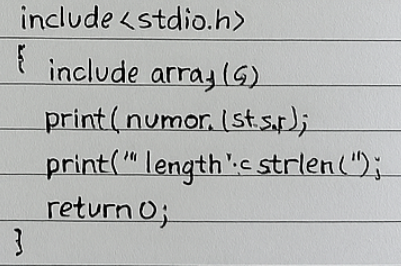 include <stdio.h>
{ include array (G)
print( numor. (st.s,r);
print("" length'.c strlen(");
return 0;
}